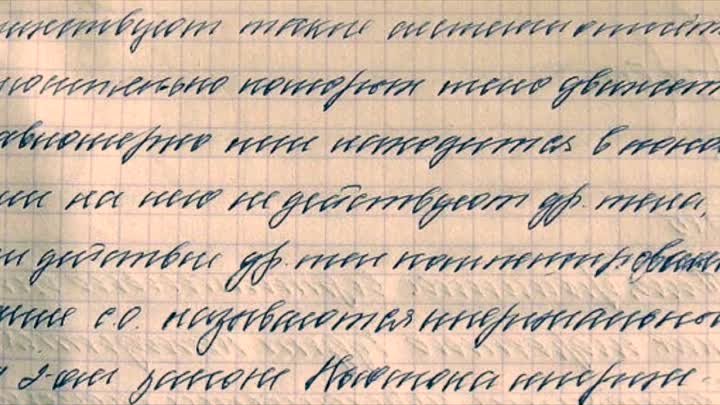 ществуют такие системы отсчёт
носительно которых тело движет
авномерно или находится в поко
ли на него не действуют др. тела,
ли действие др. тел компенсирован
кие с.о. называются инерциальны
2-ой закон Ньютона инерци-